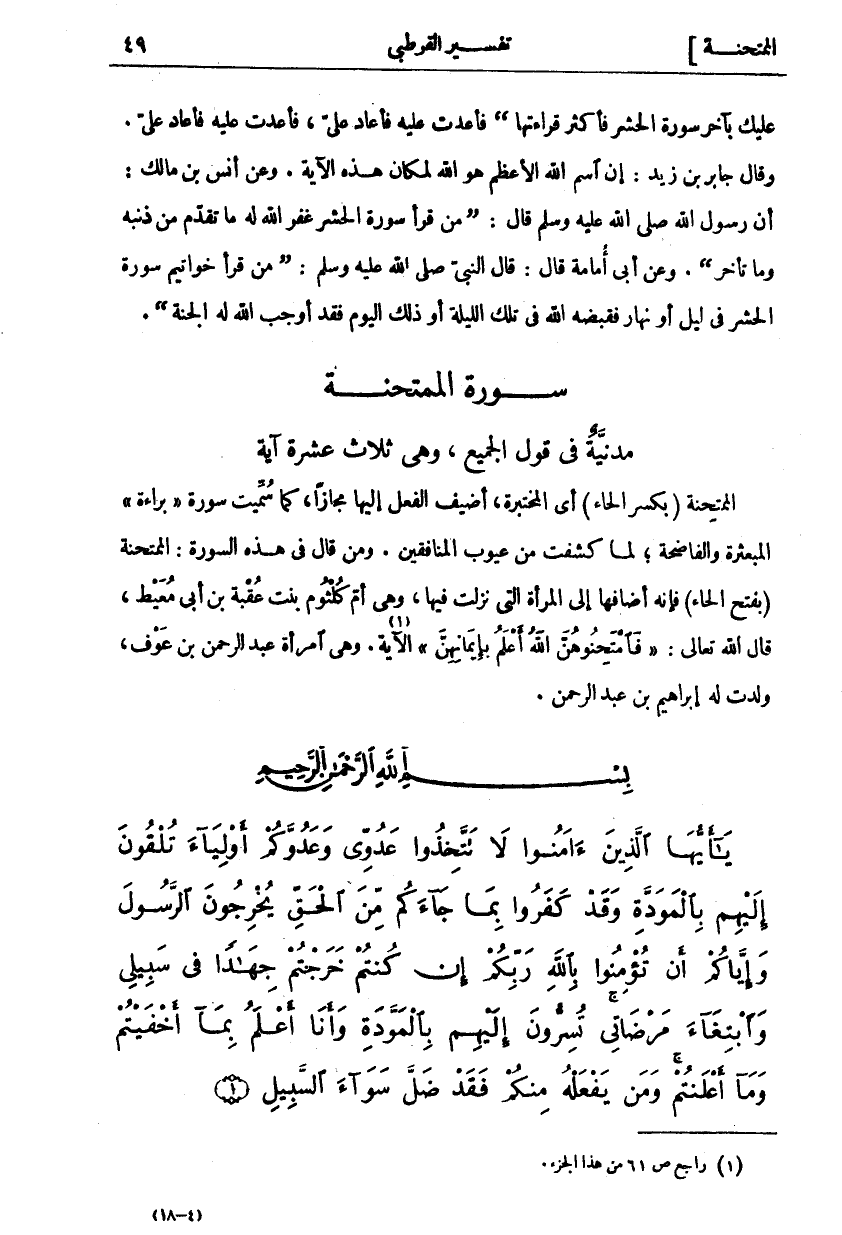 الممتحنــة ] تفســـير القرطبى ٤٩
عليك بآخر سورة الحشر فأكثر قراءتها “ فأعدت عليه فأعاد علىّ ، فأعدت عليه فأعاد علىّ .
وقال جابر بن زيد : إن ٱسم الله الأعظم هو الله لمكان هــذه الآية . وعن أنس بن مالك :
أن رسول الله صلى الله عليه وسلم قال : ” من قرأ سورة الحشر غفر الله له ما تقدّم من ذنبه
وما تأخر “ . وعن أبى أُمامة قال : قال النبىّ صلى الله عليه وسلم : ” من قرأ خواتيم سورة
الحشر فى ليل أو نهار فقبضه الله فى تلك الليلة أو ذلك اليوم فقد أوجب الله له الجنة “ .
ســـــورة الممتحنـــــة
مدنيَّةٌ فى قول الجميع ، وهى ثلاث عشرة آية
الممتحِنة ( بكسر الحاء ) أى المختبرة ، أضيف الفعل إليها مجازًا ، كما سُمِّيت سورة « براءة »
المبعثرة والفاضحة ؛ لمــا كشفت من عيوب المنافقين . ومن قال فى هــذه السورة : الممتحنة
( بفتح الحاء ) فإنه أضافها إلى المرأة التى نزلت فيها ، وهى أم كُلْثُوم بنت عُقْبة بن أبى مُعَيْط ،
قال الله تعالى : « فَٱمْتَحِنُوهُنَّ اللهُ أَعْلَمُ بِإِيمَانِهِنَّ » الآية (١) . وهى ٱمرأة عبد الرحمن بن عَوْف ،
ولدت له إبراهيم بن عبد الرحمن .
بِسْــــــــــــمِ ٱللَّهِ ٱلرَّحْمَٰنِ ٱلرَّحِيمِ
يَـٰٓأَيُّهَا ٱلَّذِينَ ءَامَنُوا لَا تَتَّخِذُوا عَدُوِّى وَعَدُوَّكُمْ أَوْلِيَآءَ تُلْقُونَ
إِلَيْهِم بِٱلْمَوَدَّةِ وَقَدْ كَفَرُوا بِمَا جَآءَكُم مِّنَ ٱلْحَقِّ يُخْرِجُونَ ٱلرَّسُولَ
وَإِيَّاكُمْ أَن تُؤْمِنُوا بِٱللَّهِ رَبِّكُمْ إِن كُنتُمْ خَرَجْتُمْ جِهَـٰدًا فِى سَبِيلِى
وَٱبْتِغَآءَ مَرْضَاتِى ۚ تُسِرُّونَ إِلَيْهِم بِٱلْمَوَدَّةِ وَأَنَا أَعْلَمُ بِمَآ أَخْفَيْتُمْ
وَمَآ أَعْلَنتُمْ ۚ وَمَن يَفْعَلْهُ مِنكُمْ فَقَدْ ضَلَّ سَوَآءَ ٱلسَّبِيلِ ﴿١﴾
(١) راجع ص ٦١ من هذا الجزء .
(٤–١٨)